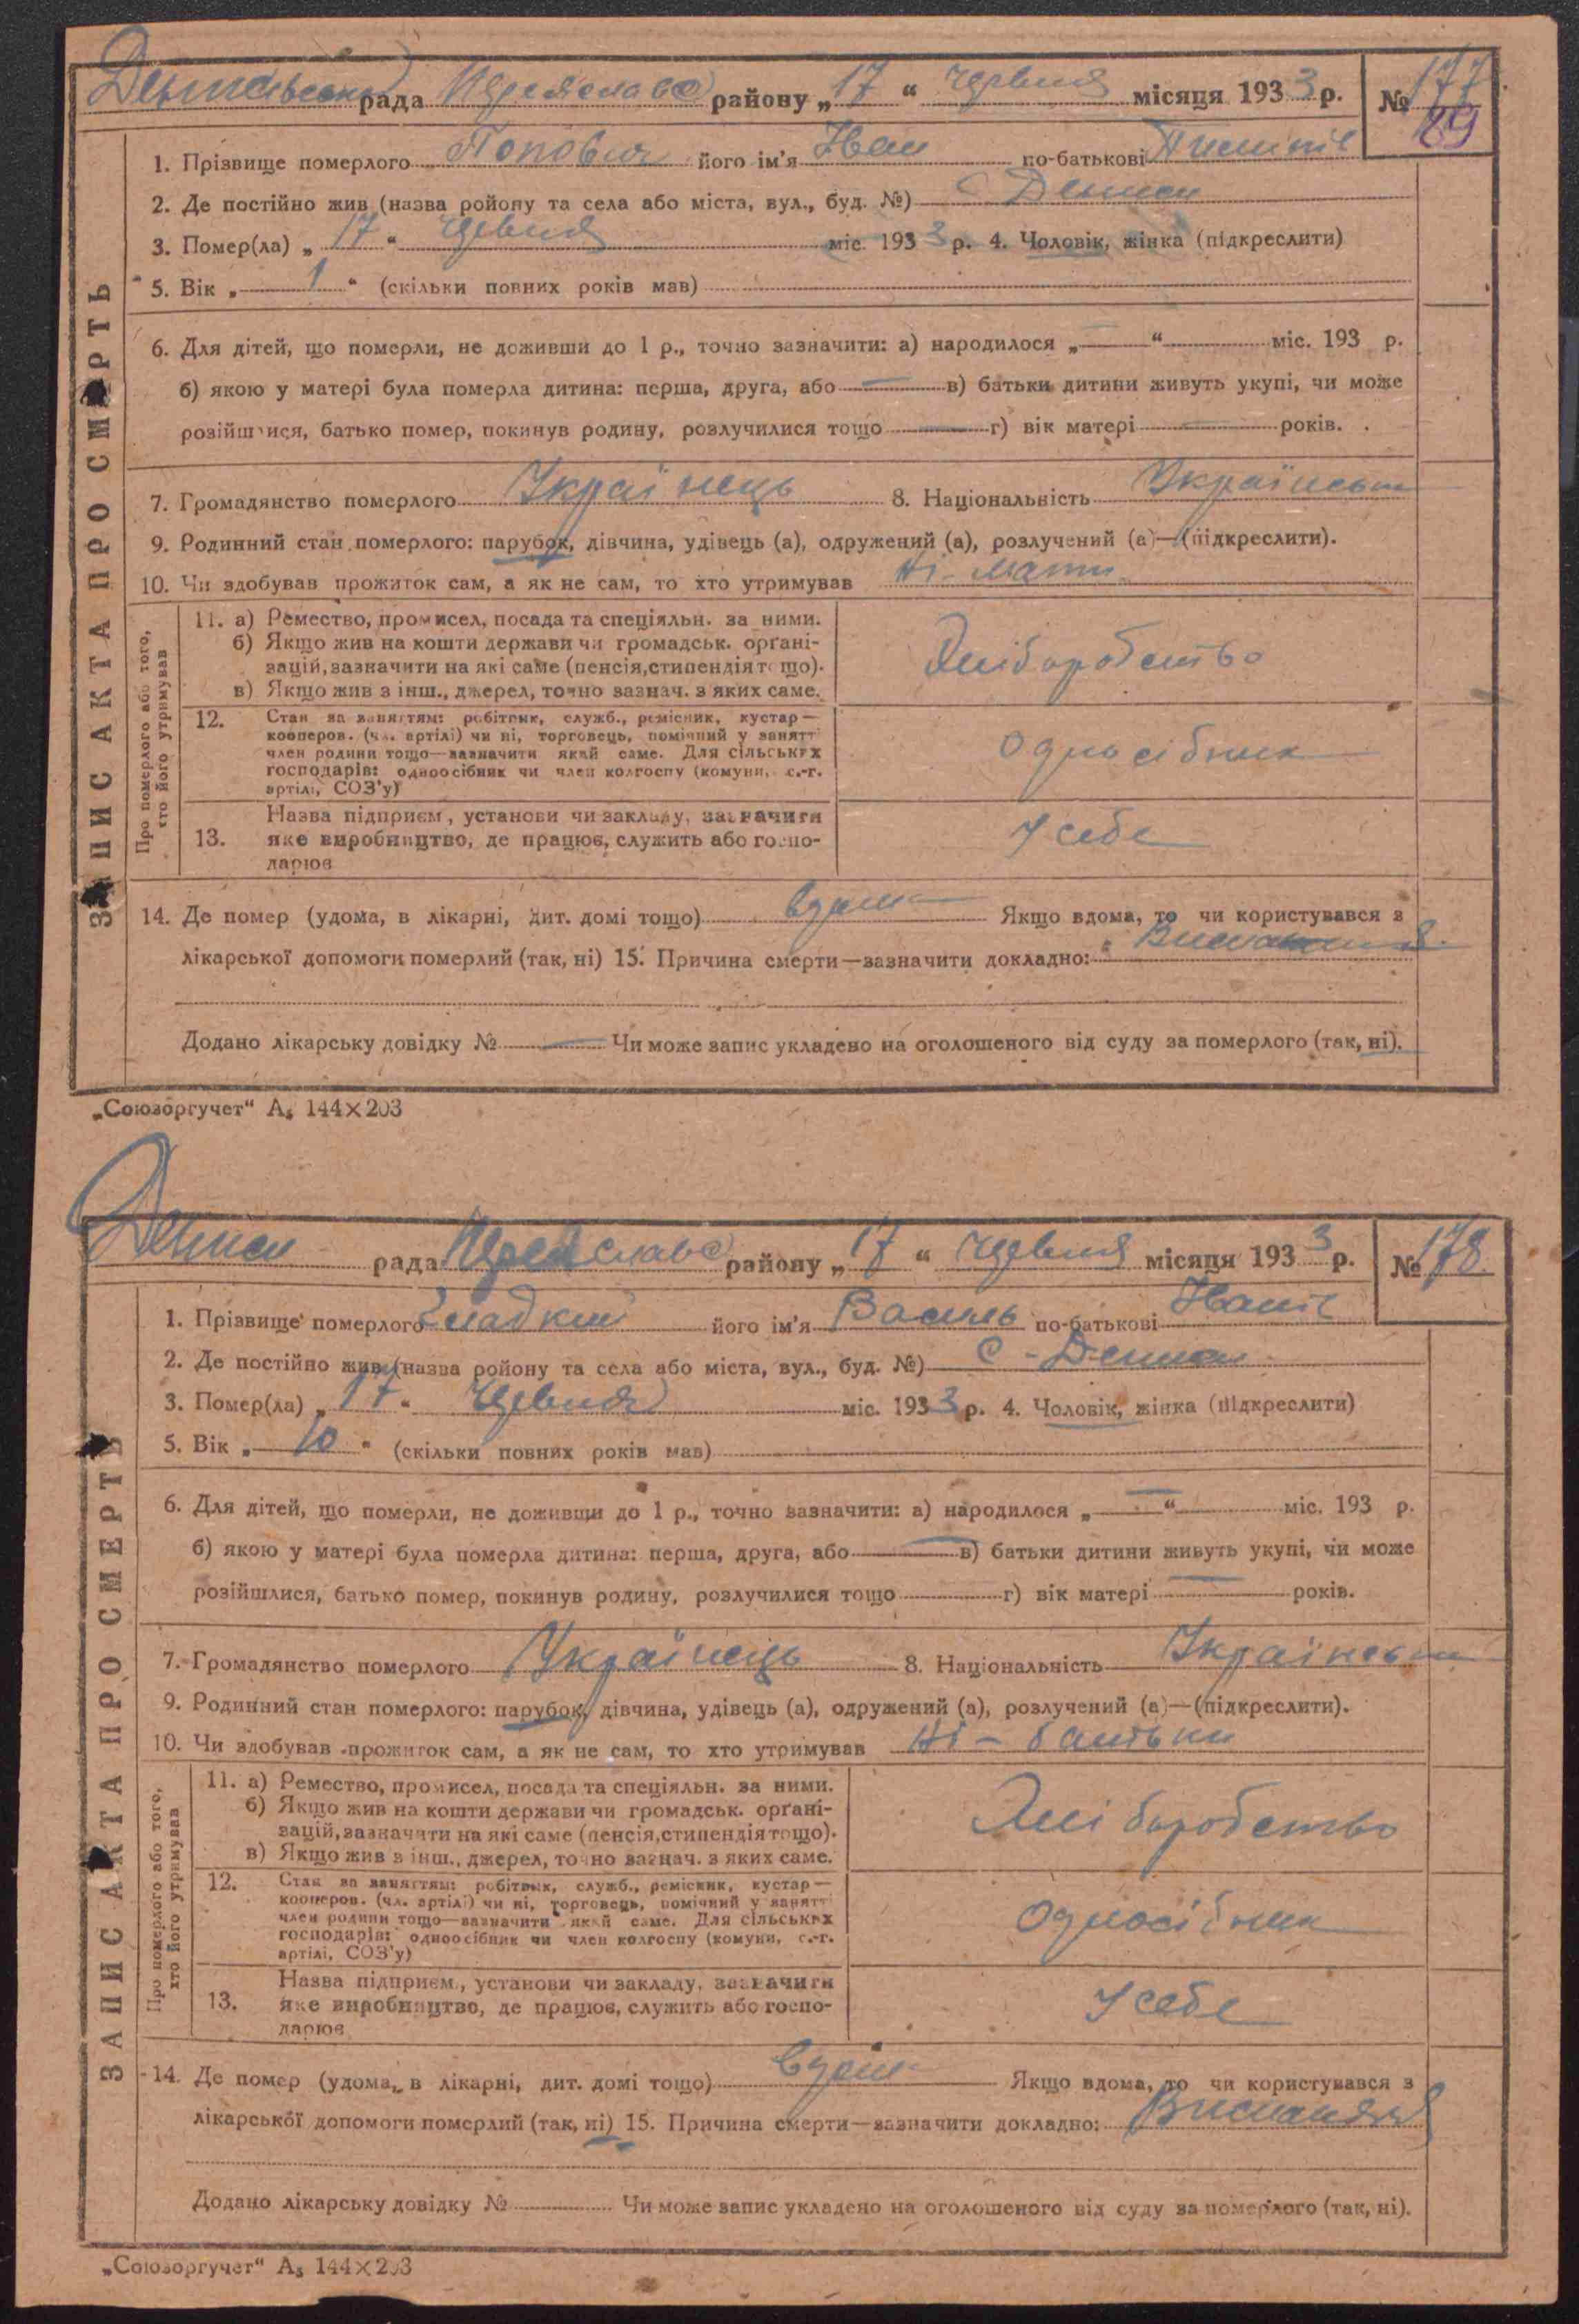 рада Переяслав района „17" червня місяця 1933 р. № 177
89
1. Прізвище померлого Попович його ім'я Іван по-батькові Пилипів
2. Де постійно жив (назва ройону та села або міста, вул., буд. №) с Деньги
3. Помер(ла) „17" червня міс. 1933 р. 4. Чоловік, жінка (підкреслити)
5. Вік „1" (скільки повних років мав)
6. Для дітей, що померли, не доживши до 1 р., точно зазначити: а) народилося „—" міс. 193 р.
б) якою у матері була померла дитина: перша, друга, або — в) батьки дитини живуть укупі, чи може
розійшлися, батько помер, покинув родину, розлучилися тощо — г) вік матері — років.
7. Громадянство померлого Українець 8. Національність
9. Родинний стан померлого: парубок, дівчина, удівець (а), одружений (а), розлучений (а)—(підкреслити).
10. Чи здобував прожиток сам, а як не сам, то хто утримував Ні - мати
ЗАПИС АКТА ПРО СМЕРТЬ
Про померлого або того, хто його утримував
11. а) Ремество, промисел, посада та спеціяльн. за ними.
б) Якщо жив на кошти держави чи громадськ. орґані-
зацій, зазначити на які саме (пенсія, стипендія тощо).
в) Якщо жив з інш., джерел, точно зазнач. з яких саме.
Хліборобство
12. Стан за заняттям: робітник, служб., ремісник, кустар—
кооперов. (чл. артілі) чи ні, торговець, помічний у занятт
член родини тощо—зазначити який саме. Для сільських
господарів: одноосібник чи член колгоспу (комуни, с.-г.
артілі, СОЗ'у)
Односібник
13. Назва підприєм., установи чи закладу, зазначити
яке виробництво, де працює, служить або госпо-
дарює
У себе
14. Де помер (удома, в лікарні, дит. домі тощо) вдома Якщо вдома, то чи користувався з
лікарської допомоги померлий (так, ні) 15. Причина смерти—зазначити докладно: Виснаження
Додано лікарську довідку № — Чи може запис укладено на оголошеного від суду за померлого (так, ні).
„Союзоргучет" А₅ 144×203
рада Переяслав района „17" червня місяця 1933 р. № 178
1. Прізвище померлого Гладкий його ім'я Василь по-батькові Іванів
2. Де постійно жив (назва ройону та села або міста, вул., буд. №) с - Деньги
3. Помер(ла) „17" червня міс. 1933 р. 4. Чоловік, жінка (підкреслити)
5. Вік „10" (скільки повних років мав)
6. Для дітей, що померли, не доживши до 1 р., точно зазначити: а) народилося „—" міс. 193 р.
б) якою у матері була померла дитина: перша, друга, або — в) батьки дитини живуть укупі, чи може
розійшлися, батько помер, покинув родину, розлучилися тощо г) вік матері — років.
7. Громадянство померлого Українець 8. Національність
9. Родинний стан померлого: парубок, дівчина, удівець (а), одружений (а), розлучений (а)—(підкреслити).
10. Чи здобував прожиток сам, а як не сам, то хто утримував Ні - батьки
ЗАПИС АКТА ПРО СМЕРТЬ
Про померлого або того, хто його утримував
11. а) Ремество, промисел, посада та спеціяльн. за ними.
б) Якщо жив на кошти держави чи громадськ. орґані-
зацій, зазначити на які саме (пенсія, стипендія тощо).
в) Якщо жив з інш., джерел, точно зазнач. з яких саме.
Хліборобство
12. Стан за заняттям: робітник, служб., ремісник, кустар—
кооперов. (чл. артілі) чи ні, торговець, помічний у занятт
член родини тощо—зазначити який саме. Для сільських
господарів: одноосібник чи член колгоспу (комуни, с.-г.
артілі, СОЗ'у)
Односібник
13. Назва підприєм., установи чи закладу, зазначити
яке виробництво, де працює, служить або госпо-
дарює
У себе
14. Де помер (удома, в лікарні, дит. домі тощо) вдома Якщо вдома, то чи користувався з
лікарської допомоги померлий (так, ні) 15. Причина смерти—зазначити докладно:
Додано лікарську довідку № Чи може запис укладено на оголошеного від суду за померлого (так, ні).
„Союзоргучет" А₅ 144×203